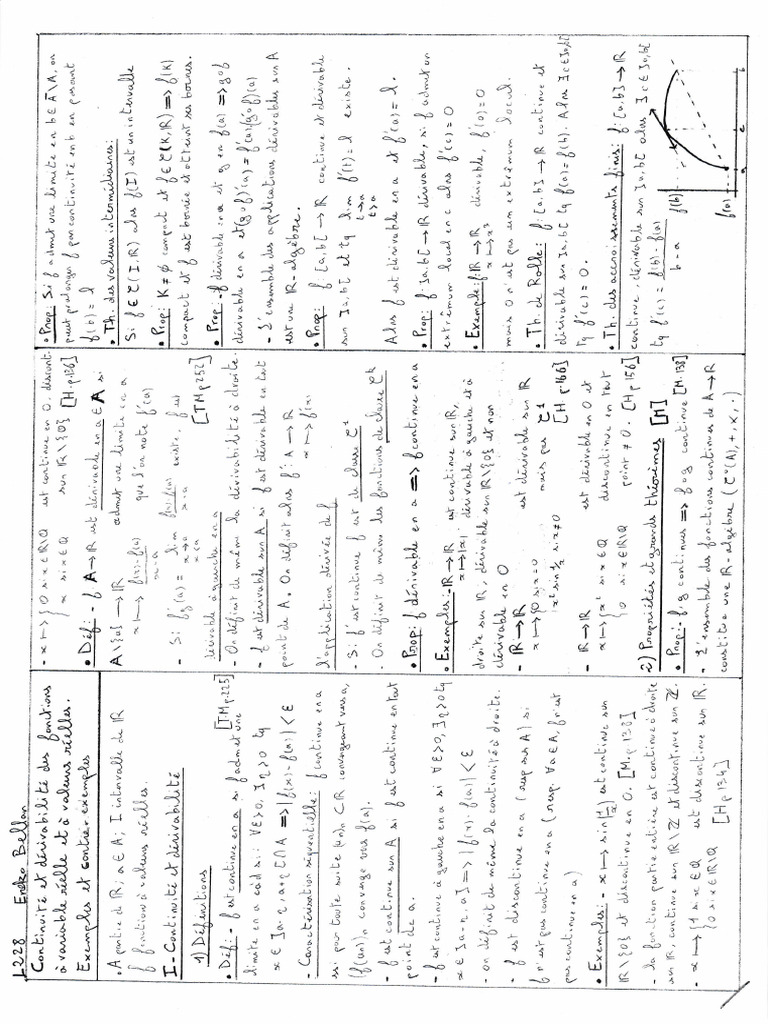 L228 Enzo Bellan
Continuité et dérivabilité des fonctions
à variable réelle et à valeurs réelles.
Exemples et contre exemples
• A partie de ℝ; a ∈ A; I intervalle de ℝ
f fonction à valeurs réelles.
I - Continuité et dérivabilité
1) Définitions [TM p.225]
• Déf: - f est continue en a si f admet une
limite en a càd si: ∀ε>0, ∃η>0 tq
x ∈ ]a-η, a+η[∩A ⟹ |f(x)-f(a)| < ε
- Caractérisation séquentielle: f continue en a
ssi pour toute suite (an)n ⊂ ℝ convergeant vers a,
(f(an))n converge vers f(a).
- f est continue sur A si f est continue en tout
point de a.
- f est continue à gauche en a si ∀ε>0, ∃η>0 tq
x ∈ ]a-η, a] ⟹ |f(x)-f(a)| < ε
- On définit de même la continuité à droite.
- f est discontinue en a (resp sur A) si
f n'est pas continue en a (resp ∀a∈A, f n'est
pas continue en a)
• Exemples: - x ⟼ sin(1/x) est continue sur
ℝ\{0} et discontinue en 0. [M. p.138]
- la fonction partie entière est continue à droite
sur ℝ, continue sur ℝ\ℤ et discontinue sur ℤ.
- x ⟼ {1 si x∈ℚ est discontinue sur ℝ.
{0 si x∈ℝ\ℚ [H p 134]
- x ⟼ {0 si x∈ℝ\ℚ est continue en 0, discont.
{x si x∈ℚ sur ℝ\{0} [H p.136]
• Déf: - f: A→ℝ est dérivable en a ∈ A si
A\{a} ⟶ ℝ admet une limite en a
x ⟼ f(x)-f(a)/x-a que l'on note f'(a)
- Si f'g(a) = lim x→a x<a f(x)-f(a)/x-a existe, f est
dérivable à gauche en a [TM p252]
- On définit de même la dérivabilité à droite.
- f est dérivable sur A si f est dérivable en tout
point de A. On définit alors f': A → ℝ
l'application dérivée de f x ⟼ f'(x)
- Si f' est continue f est de classe C¹
. On définit de même les fonctions de classe C^k
• Prop: f dérivable en a ⟹ f continue en a
• Exemples: - ℝ→ℝ est continue sur ℝ,
x⟼|x| dérivable à gauche et à
droite sur ℝ, dérivable sur ℝ\{0} et non
dérivable en 0
- ℝ→ℝ est dérivable sur ℝ
x⟼{0 si x=0 mais pas C¹
{x² sin 1/x si x≠0 [H. p166]
- ℝ→ℝ est dérivable en 0 et
x⟼{x² si x∈ℚ discontinue en tout
{0 si x∈ℝ\ℚ point ≠ 0. [H p156]
2) Propriétés et grands théorèmes [M]
• Prop: - f, g continues ⟹ f∘g continue [M. 138]
- L'ensemble des fonctions continues de A→ℝ
constitue une ℝ-algèbre (C⁰(A), +, ×, ·)
• Prop: Si f admet une limite en b ∈ A̅\A, on
peut prolonger f par continuité en b en posant
f(b) = l
• Th. des valeurs intermédiaires:
Si f ∈ C(I,ℝ) alors f(I) est un intervalle
• Prop: K ≠ ∅ compact et f ∈ C(K,ℝ) ⟹ f(K)
compact et f est bornée et atteint ses bornes.
• Prop: - f dérivable en a et g en f(a) ⟹ g∘f
dérivable en a et (g∘f)'(a) = f'(a)(g'∘f)(a)
- L'ensemble des applications dérivables sur A
est une ℝ-algèbre.
• Prop: f: [a,b[ → ℝ continue et dérivable
sur ]a,b[ et tq lim t→a t>a f'(t) = l existe.
Alors f est dérivable en a et f'(a) = l.
• Prop: f: ]a,b[ → ℝ dérivable, si f admet un
extrémum local en c alors f'(c) = 0
• Exemple: f: ℝ→ℝ dérivable, f'(0)=0
x⟼x³
mais 0 n'est pas un extrémum local.
• Th de Rolle: f: [a,b] → ℝ continue et
dérivable sur ]a,b[ tq f(a)=f(b). Alors ∃c∈]a,b[
tq f'(c) = 0.
• Th. des accroissements finis: f: [a,b] → ℝ
continue, dérivable sur ]a,b[ alors ∃c∈]a,b[
tq f'(c) = f(b)-f(a)/b-a
f(b)
f(a)
a c b